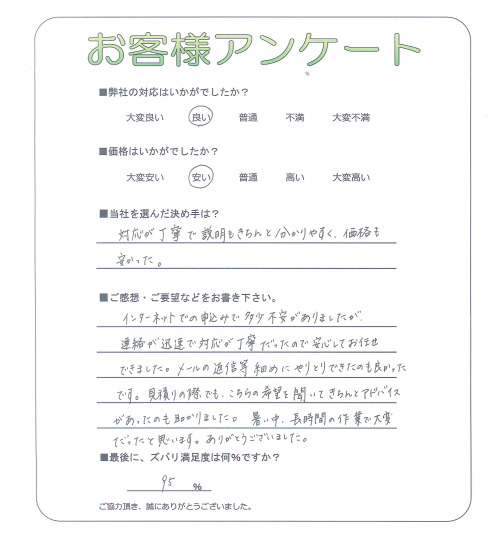 お客様アンケート
■弊社の対応はいかがでしたか？
大変良い 良い 普通 不満 大変不満
■価格はいかがでしたか？
大変安い 安い 普通 高い 大変高い
■当社を選んだ決め手は？
対応が丁寧で説明もきちんと分かりやすく、価格も
安かった。
■ご感想・ご要望などをお書き下さい。
インターネットでの申込みで多少不安がありましたが
連絡が迅速で対応が丁寧だったので安心してお任せ
できました。メールの返信等細めにやりとりできたのも良かった
です。見積りの際でも、こちらの希望を聞いてきちんとアドバイス
があったのも助かりました。暑い中、長時間の作業で大変
だったと思います。ありがとうございました。
■最後に、ズバリ満足度は何%ですか？
95 %
ご協力頂き、誠にありがとうございました。